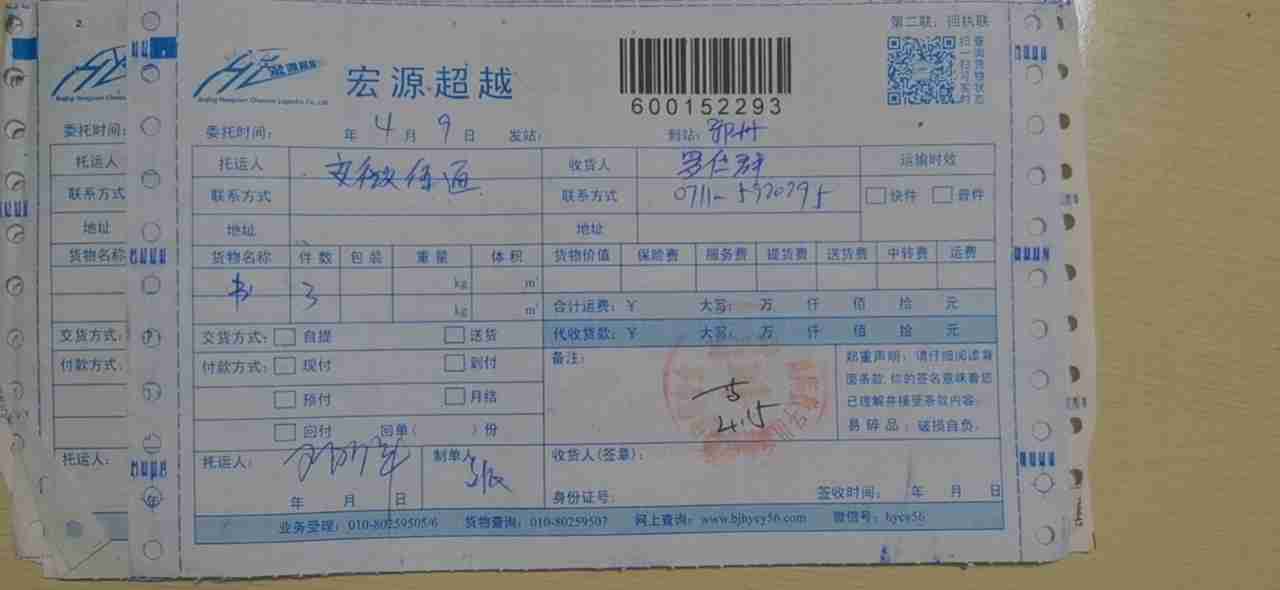 第二联：回执联
宏源超越
600152293
扫一扫可实时
查询货物状态
委托时间： 年 4 月 9 日 发站： 到站：鄂州
托运人 收货人 罗仁群 运输时效
联系方式 联系方式 0711-5920295 快件 普件
地址 地址
货物名称 件数 包装 重量 体积 货物价值 保险费 服务费 提货费 送货费 中转费 运费
书 3 kg m³
kg m³
合计运费：￥ 大写： 万 仟 佰 拾 元
交货方式： 自提 送货 代收货款：￥ 大写： 万 仟 佰 拾 元
付款方式： 现付 到付 备注：
郑重声明：请仔细阅读背
面条款,你的签名意味着您
已理解并接受条款内容。
易碎品：破损自负。
预付 月结
回付 回单（ ）份
4.15
托运人： 制单人 收货人(签章)：
年 月 日 身份证号： 签收时间： 年 月 日
业务受理：010-80259505/6 货物查询：010-80259507 网上查询：www.bjhycy56.com 微信号：hycy56
2
委托时间：
托运人
联系方式
地址
货物名称
交货方式：
付款方式：
托运人：